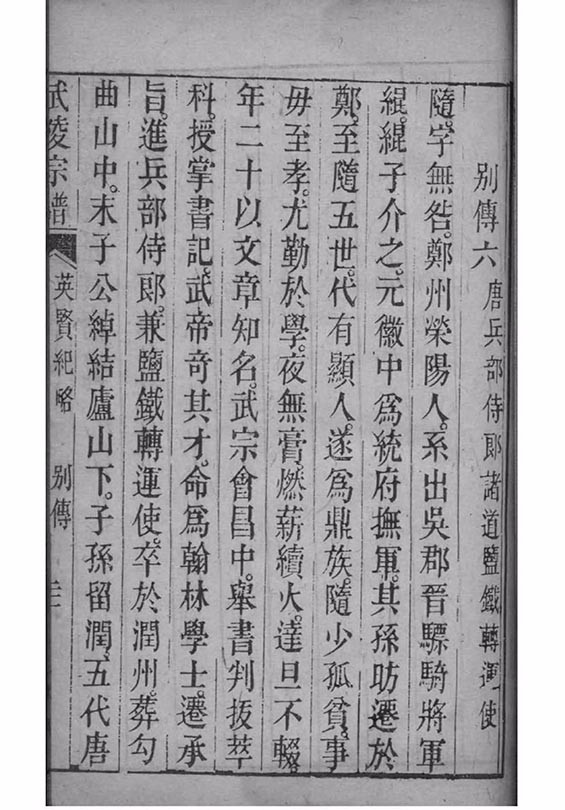 別傳六 唐兵部侍郎諸道鹽鐵轉運使
隨。字無咎。鄭州榮陽人。系出吳郡晉驃騎將軍
緄。緄子介之。元徽中爲統府撫軍。其孫昉遷於
鄭。至隨五世。代有顯人。遂爲鼎族。隨少孤貧。事
毋至孝。尤勤於學。夜無膏。燃薪續火。達旦不輟。
年二十以文章知名。武宗會昌中。舉書判拔萃
科。授掌書記。武帝奇其才。命爲翰林學士。遷承
旨。進兵部侍郎。兼鹽鐵轉運使。卒於潤州。葬勾
曲山中。末子公綽結廬山下。子孫留潤。五代唐
武陵宗譜 英賢紀略 別傳